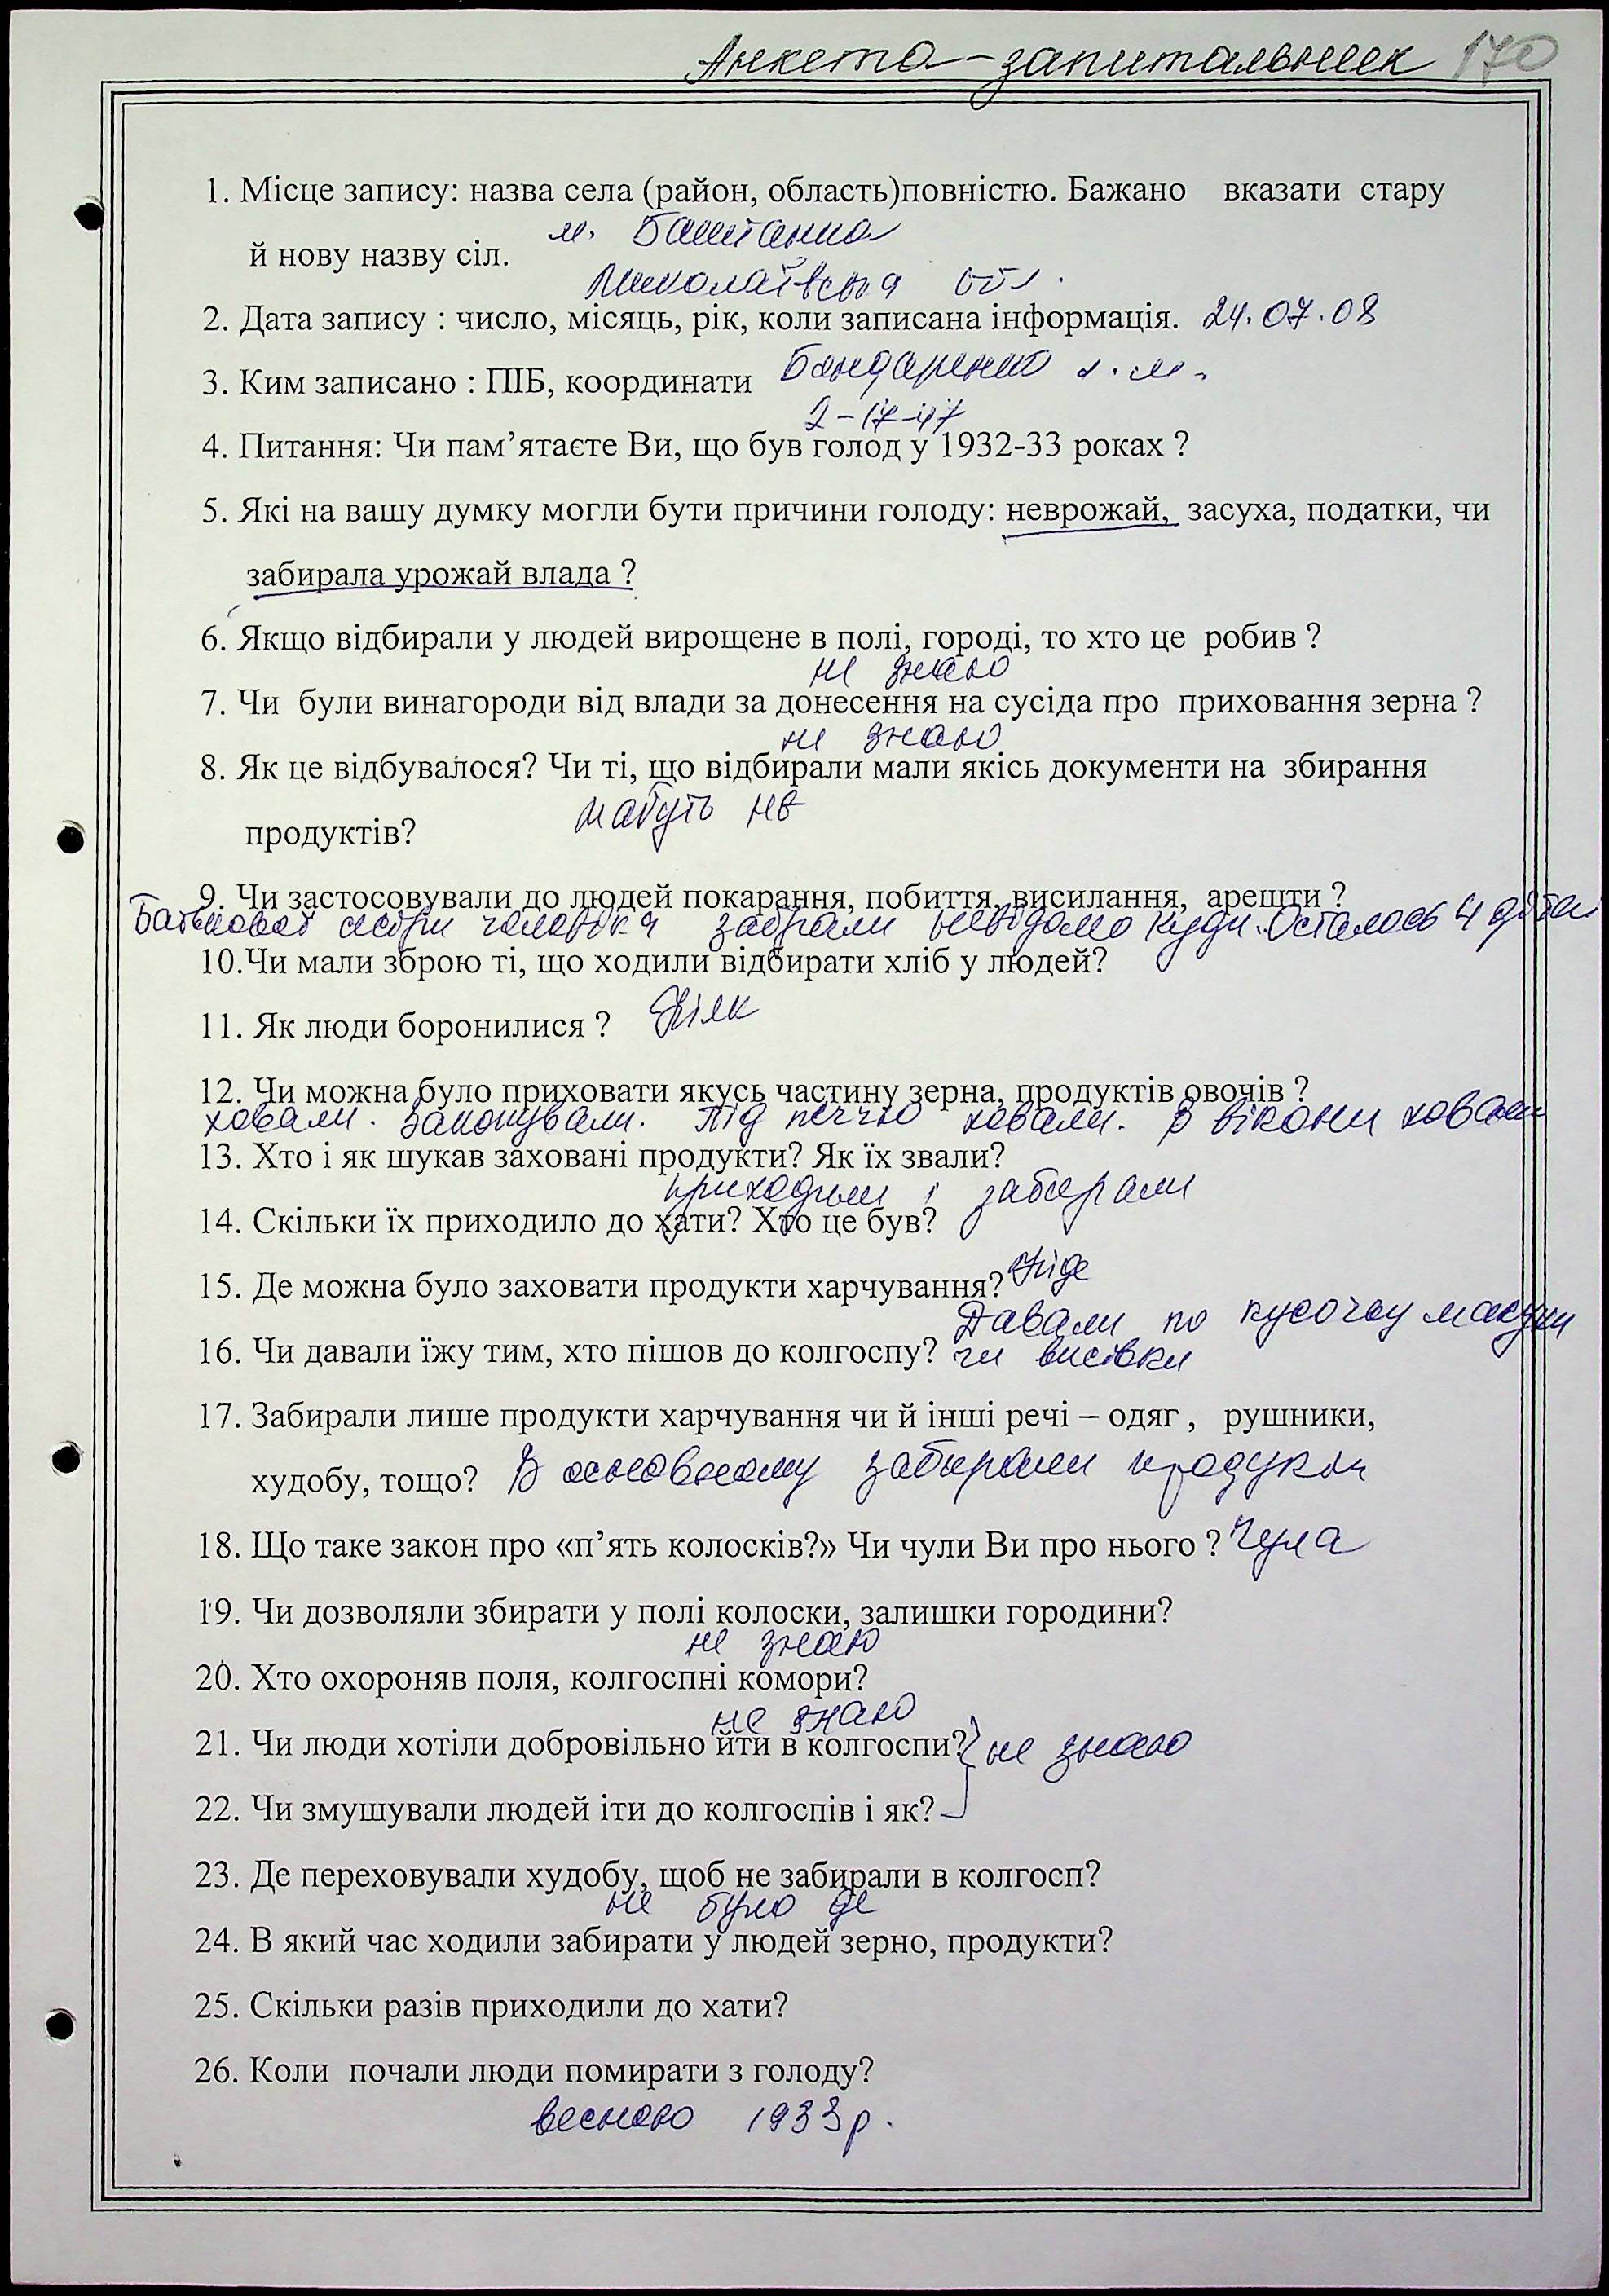 Анкета-запитальник 170
1. Місце запису: назва села (район, область)повністю. Бажано вказати стару
й нову назву сіл. м. Баштанка
Миколаївська обл.
2. Дата запису : число, місяць, рік, коли записана інформація. 24.07.08
3. Ким записано : ПІБ, координати Бондаренко
2-17-47
4. Питання: Чи пам’ятаєте Ви, що був голод у 1932-33 роках ?
5. Які на вашу думку могли бути причини голоду: неврожай, засуха, податки, чи
забирала урожай влада ?
6. Якщо відбирали у людей вирощене в полі, городі, то хто це робив ?
не знаю
7. Чи були винагороди від влади за донесення на сусіда про приховання зерна ?
не знаю
8. Як це відбувалося? Чи ті, що відбирали мали якісь документи на збирання
продуктів? мабуть не
9. Чи застосовували до людей покарання, побиття, висилання, арешти ?
Батькової сестри чоловіка забрали невідомо куди. Осталось 4 дітей
10.Чи мали зброю ті, що ходили відбирати хліб у людей?
11. Як люди боронилися ? Ніяк
12. Чи можна було приховати якусь частину зерна, продуктів овочів ?
ховали. Закопували. Під піччю ховали. В вікони ховали
13. Хто і як шукав заховані продукти? Як їх звали?
приходили і забирали
14. Скільки їх приходило до хати? Хто це був?
15. Де можна було заховати продукти харчування? Ніде
Давали по кусочку макухи
16. Чи давали їжу тим, хто пішов до колгоспу? чи висівки
17. Забирали лише продукти харчування чи й інші речі – одяг , рушники,
худобу, тощо? В основному забирали продукти
18. Що таке закон про «п’ять колосків?» Чи чули Ви про нього ? Чула
19. Чи дозволяли збирати у полі колоски, залишки городини?
не знаю
20. Хто охороняв поля, колгоспні комори?
не знаю
21. Чи люди хотіли добровільно йти в колгоспи? не знаю
22. Чи змушували людей іти до колгоспів і як?
23. Де переховували худобу, щоб не забирали в колгосп?
не було де
24. В який час ходили забирати у людей зерно, продукти?
25. Скільки разів приходили до хати?
26. Коли почали люди помирати з голоду?
весною 1933р.